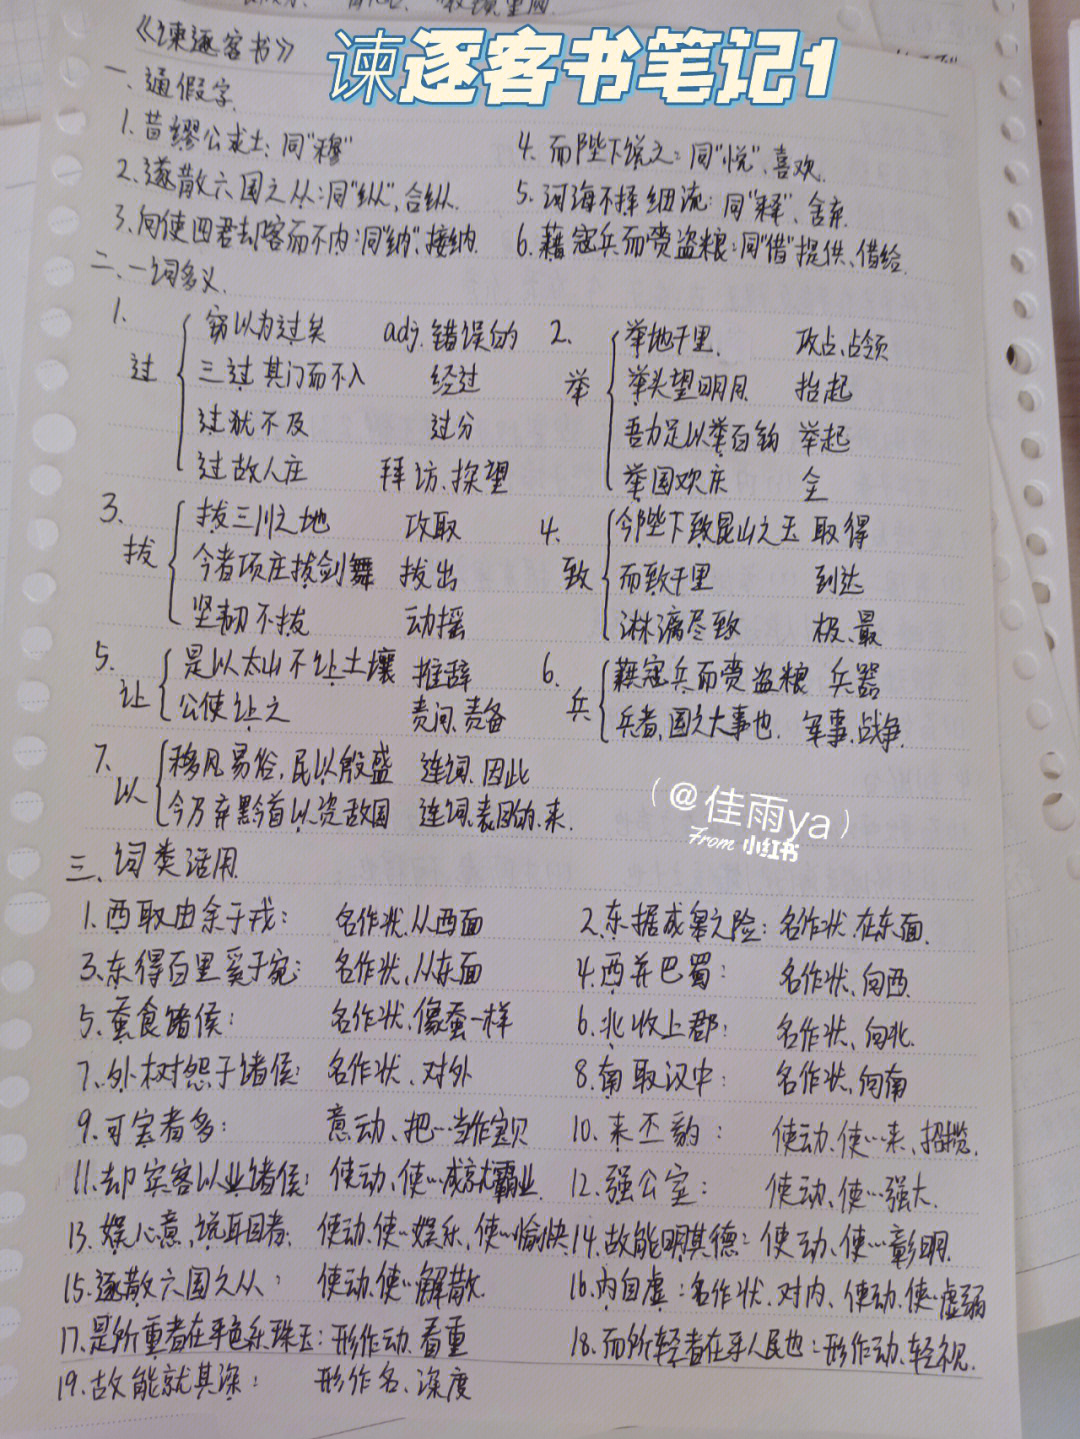 谏逐客书笔记1
《谏逐客书》
一、通假字
1.昔缪公求士:同"穆"
4.而陛下说之:同"悦",喜欢.
2.遂散六国之从:同"纵",合纵.
5.河海不择细流:同"释",舍弃.
3.向使四君却客而不内:同"纳",接纳.
6.藉寇兵而赍盗粮:同"借"提供、借给.
二、一词多义.
1.
过
窃以为过矣 adj.错误的
三过其门而不入 经过
过犹不及 过分
过故人庄 拜访、探望
2.
举
举地千里. 攻占、占领
举头望明月 抬起
吾力足以举百钧 举起
举国欢庆 全
3.
拔
拔三川之地 攻取
今者项庄拔剑舞 拔出
坚韧不拔 动摇
4.
致
今陛下致昆山之玉 取得
而致千里 到达
淋漓尽致 极、最
5.
让
是以太山不让土壤 推辞
公使让之 责问、责备
6.
兵
藉寇兵而赍盗粮 兵器
兵者,国之大事也. 军事、战争.
7.
以
移风易俗,民以殷盛 连词.因此
今乃弃黔首以资敌国 连词.表目的.来.
(@佳雨ya)
From 小红书
三、词类活用.
1.西取由余于戎: 名作状.从西面
2.东据成皋之险:名作状.在东面.
3.东得百里奚于宛: 名作状,从东面
4.西并巴蜀: 名作状、向西.
5.蚕食诸侯: 名作状、像蚕一样
6.北收上郡: 名作状、向北.
7.外树怨于诸侯: 名作状、对外
8.南取汉中: 名作状,向南
9.可宝者多: 意动、把…当作宝贝
10.来丕豹: 使动、使…来、招揽.
11.却宾客以业诸侯: 使动、使…成就霸业.
12.强公室: 使动、使…强大.
13.娱心意,说耳目者: 使动、使…娱乐,使…愉快
14.故能明其德: 使动、使…彰明.
15.遂散六国之从: 使动、使…解散.
16.内自虚:名作状.对内、使动.使…虚弱
17.是所重者在乎色乐珠玉:形作动.看重
18.而所轻者在乎人民也:形作动、轻视.
19.故能就其深: 形作名、深度